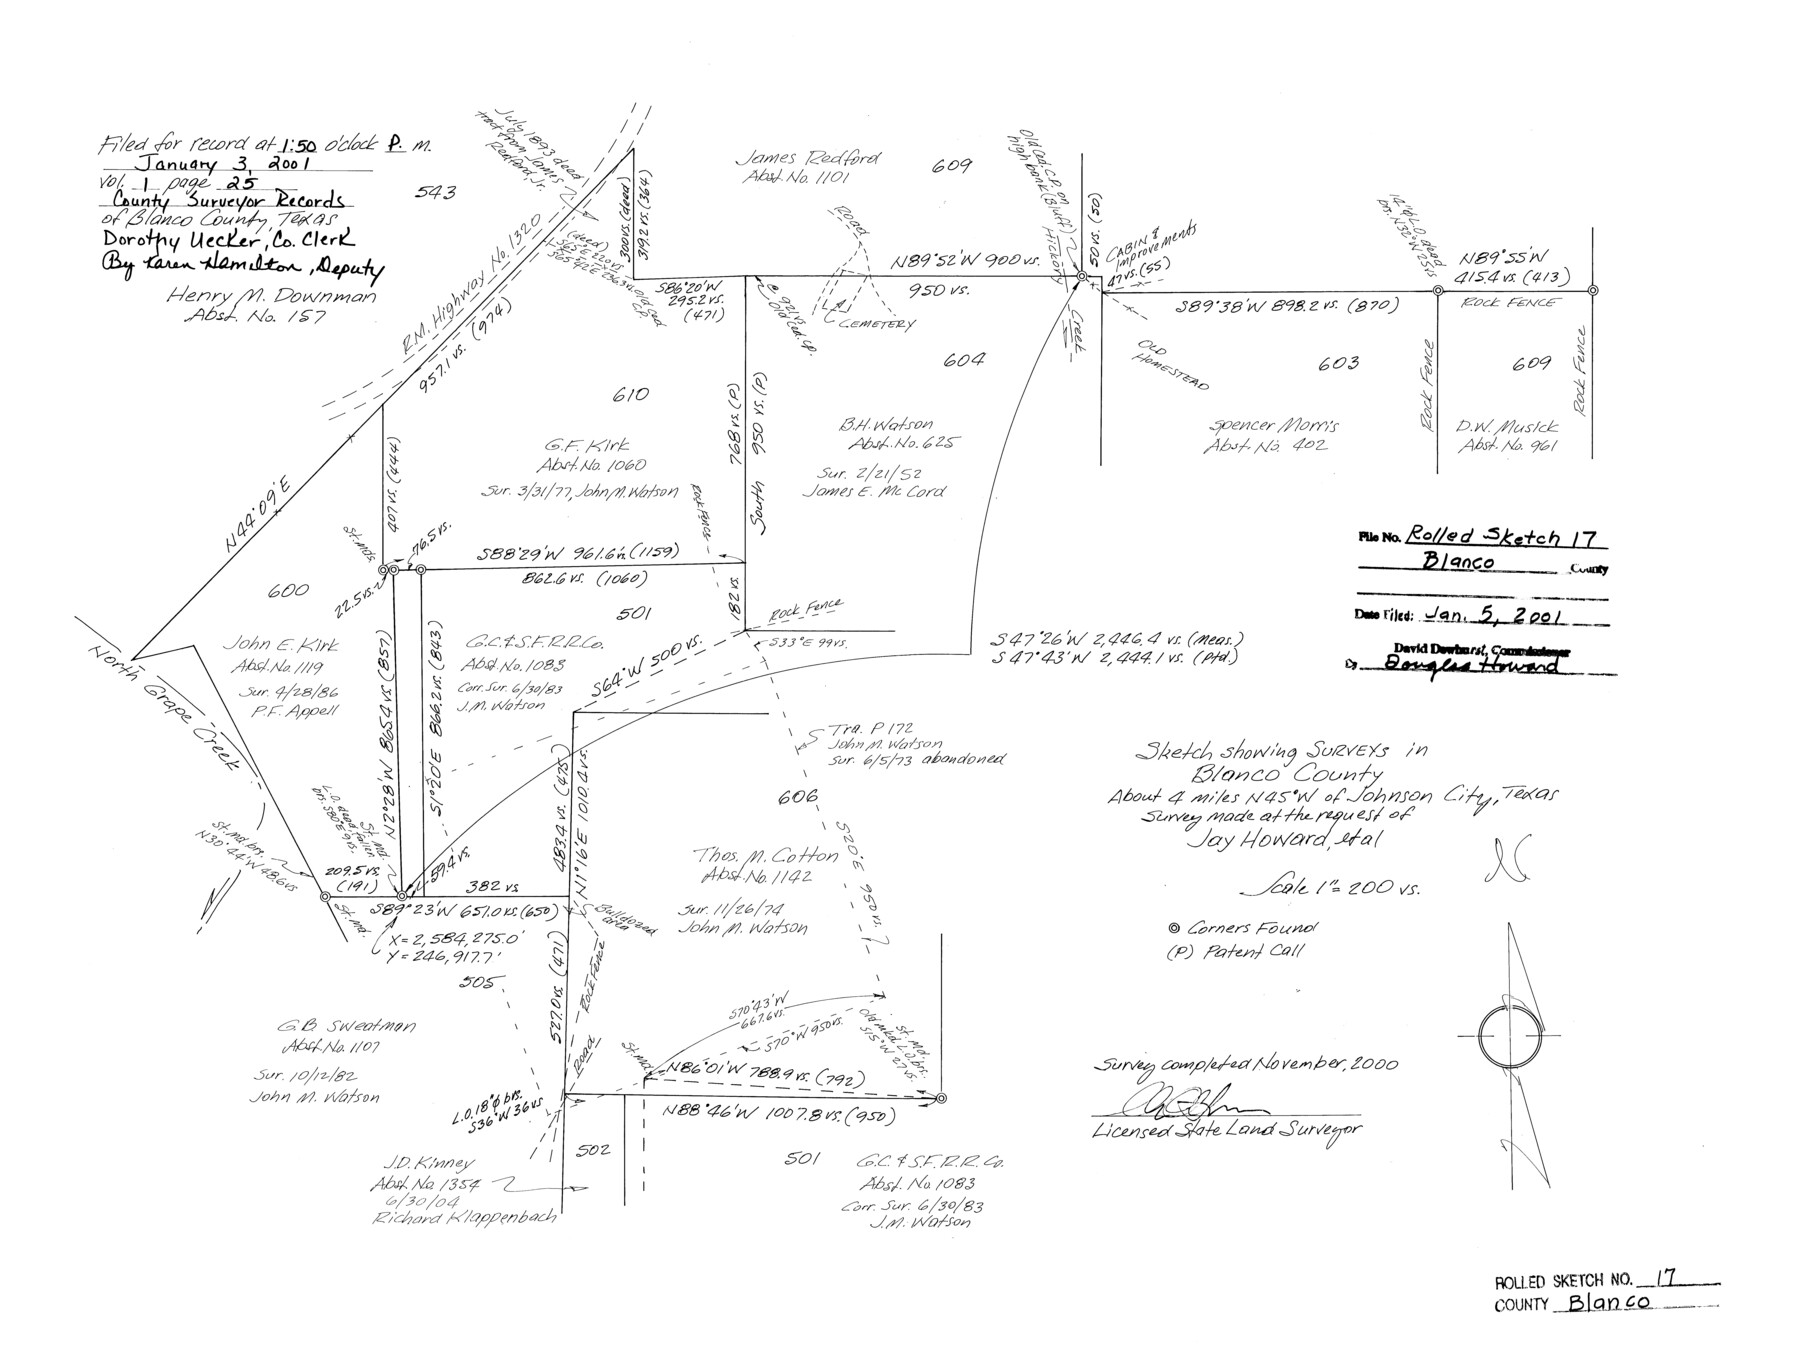 Filed for record at 1:50 o'clock P. M.
January 3, 2001
Vol. 1 page 25
County Surveyor Records
of Blanco County, Texas
Dorothy Uecker, Co. Clerk
By Karen Hamilton, Deputy
Henry M. Downman
Abst. No. 157
543
July 1893 deed
tract from James
Redford, Jr.
R.M. Highway No. 1320
957.1 vs. (974)
N44°09'E
(deed)
300 vs. (deed)
319.2 vs. (364)
James Redford
Abst. No. 1101
609
Road
CEMETERY
Old Ced. C.P. on
high bank (Bluff)
Hickory
Creek
50 vs. (50)
CABIN &
Improvements
47 vs. (55)
OLD
HOMESTEAD
N89°52'W 900 vs.
950 vs.
S86°20'W
295.2 vs.
(471)
@ 921 vs.
Old Ced. C.P.
14"ø L.O. dead
brs. N32°W 25 vs
N89°55'W
415.4 vs. (413)
ROCK FENCE
S89°38'W 898.2 vs. (870)
603
Rock Fence
609
Rock Fence
Spencer Morris
Abst. No. 402
D.W. Musick
Abst. No. 961
604
B.H. Watson
Abst. No. 625
Sur. 2/21/52
James E. McCord
610
G.F. Kirk
Abst. No. 1060
Sur. 3/31/77, John M. Watson
768 vs. (P)
South 950 vs. (P)
182 vs.
Rock Fence
407 vs. (444)
St. mds.
76.5 vs.
22.5 vs.
S88°29'W 961.6 vs. (1159)
862.6 vs. (1060)
600
John E. Kirk
Abst. No. 1119
Sur. 4/28/86
P.F. Appell
North Grape Creek
501
G.C. & S.F. R.R. Co.
Abst. No. 1083
Corr. Sur. 6/30/83
J.M. Watson
N2°28'W 865.4 vs (857)
S1°20'E 866.2 vs. (843)
Rock Fence
S33°E 99 vs.
S64°W 500 vs.
S47°26'W 2,446.4 vs. (Meas.)
S47°43'W 2,444.1 vs. (Ptd.)
Tra. P 172
John M. Watson
Sur. 6/5/73 abandoned
606
S20°E 950 vs.
Thos. M. Cotton
Abst. No. 1142
Sur. 11/26/74
John M. Watson
483.4 vs. (475)
N1°16'E 1010.4 vs.
St. md. brs.
N30°44'W 48.6 vs
L.O. dead, fallen
brs. S80°E 9 vs.
St. Md.
209.5 vs.
(191)
59.4 vs.
382 vs
S89°23'W 651.0 vs. (650)
St. Md.
X = 2,584,275.0'
Y = 246,917.7'
Bulldozed
area
Rock Fence
527.0 vs. (471)
Road
505
G.B. Sweatman
Abst. No. 1107
Sur. 10/12/82
John M. Watson
L.O. 18"ø brs.
S36°W 36 vs
St. Md.
S70°43'W
667.6 vs.
S70°W 950 vs.
St. md.
Old mkd. L.O. brs.
S15°W 27 vs.
N86°01'W 788.9 vs. (792)
N88°46'W 1007.8 vs. (950)
502
J.D. Kinney
Abst. No. 1354
6/30/04
Richard Klappenbach
501
G.C. & S.F. R.R. Co.
Abst. No. 1083
Corr. Sur. 6/30/83
J.M. Watson
File No. Rolled Sketch 17
Blanco County
Date Filed: Jan. 5, 2001
David Dewhurst, Commissioner
By Douglas Howard
Sketch showing SURVEYS in
Blanco County
About 4 miles N45°W of Johnson City, Texas
Survey made at the request of
Jay Howard, et al
Scale 1" = 200 vs.
Corners Found
(P) Patent Call
Survey completed November, 2000
Licensed State Land Surveyor
ROLLED SKETCH NO. 17
COUNTY Blanco